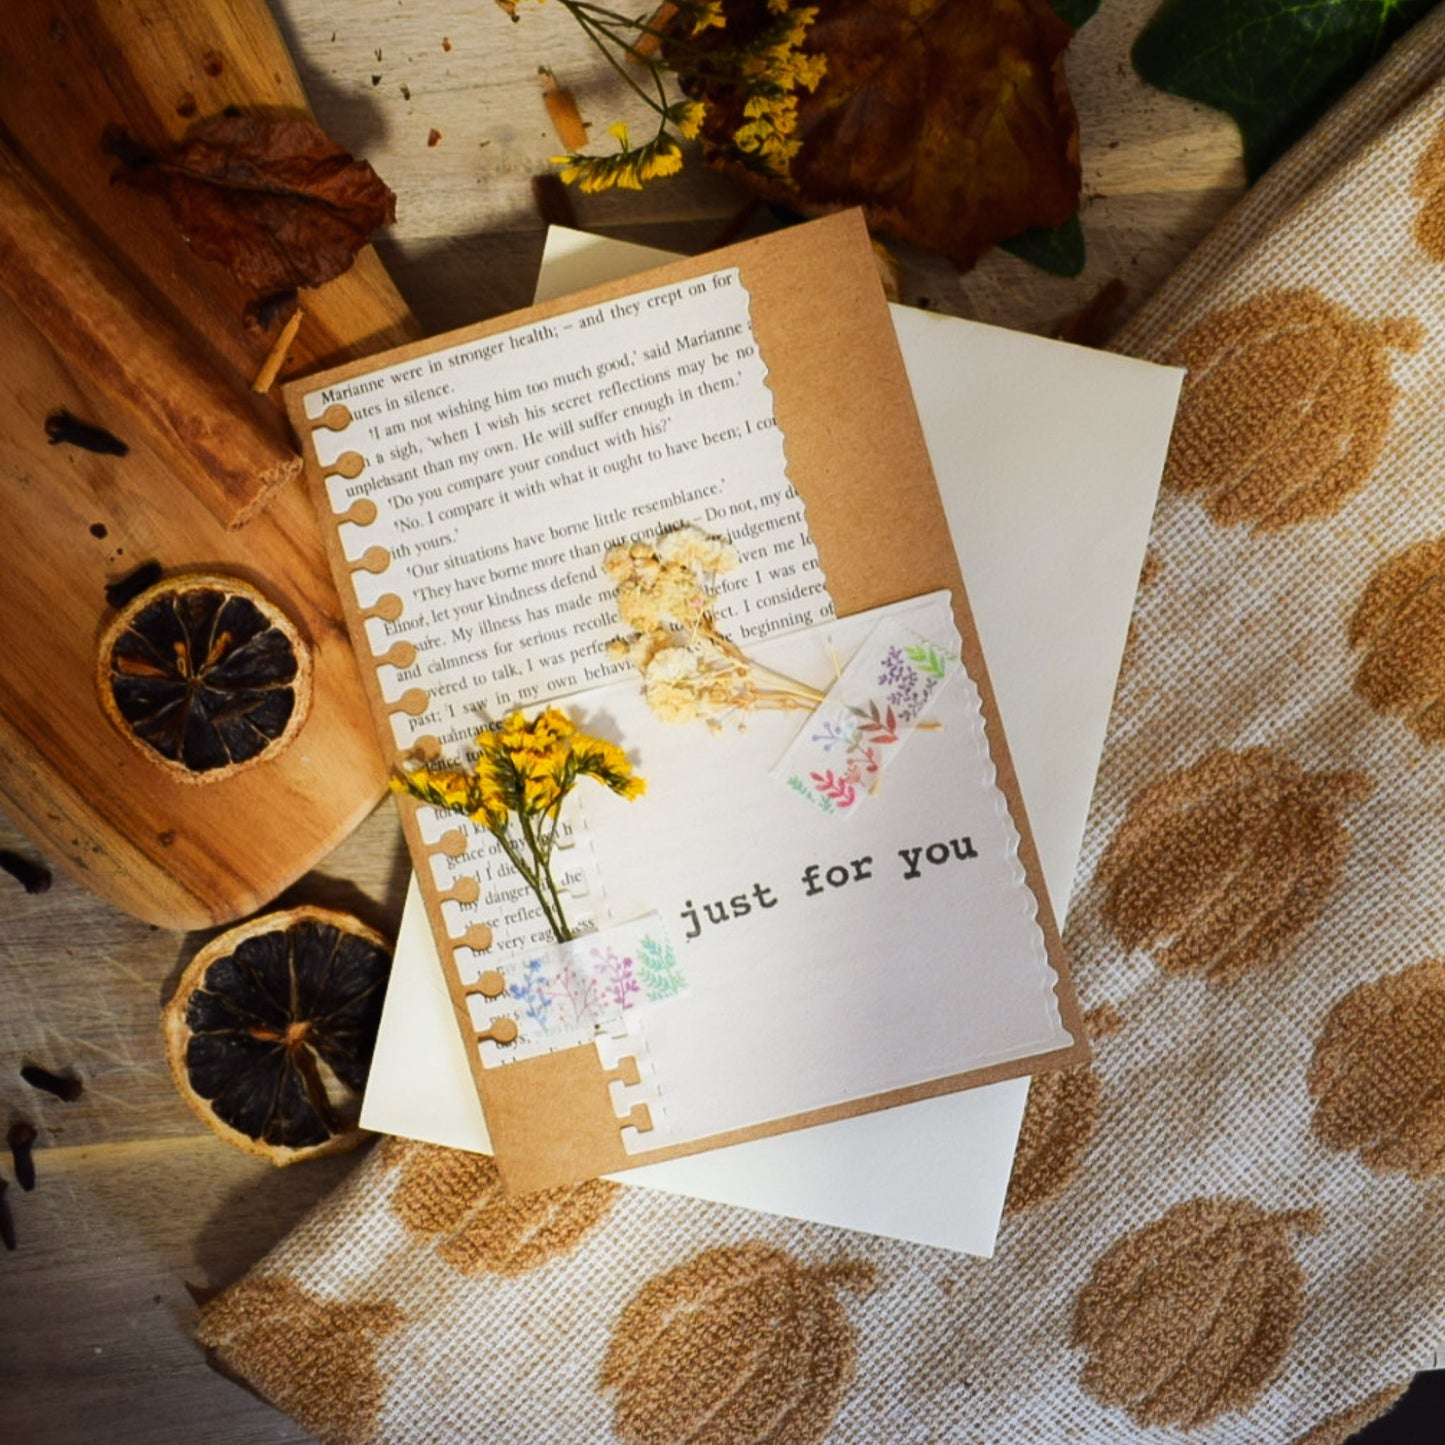 Marianne were in stronger health; – and they crept on for
utes in silence.
'I am not wishing him too much good,' said Marianne
a sigh, 'when I wish his secret reflections may be no
unpleasant than my own. He will suffer enough in them.'
'Do you compare your conduct with his?'
'No. I compare it with what it ought to have been; I
ith yours.'
'Our situations have borne little resemblance.'
'They have borne more than our conduct. – Do not, my
Elinor, let your kindness defend judgement
sure. My illness has made me
and calmness for serious before I was
to talk, I was I considered
past; I saw in my own beginning of
uaintance
gence of my
I
my danger the
reflec
very
days,
just for you